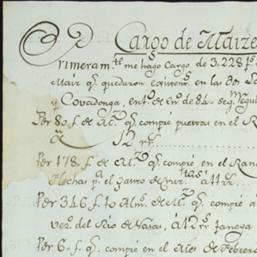 Cargo de Maize
Primeram.te me hago Cargo de 3.228 f.s
Maiz q.e quedaron existen.s en las
y Covadonga, en de 84 seg.n
Por 80 f. de M.z q.e compré puertas en el R
á 12 r.s
Por 178 f. de M.z q.e compré en el Ran
Fecha p.r el
Por 346 f. 10 Alm.s de M.z q.e compré á
vez.s del Rio de Naias, á 12 r.s fanega
Por 6 f. q.e compré en el Mes de Febrero